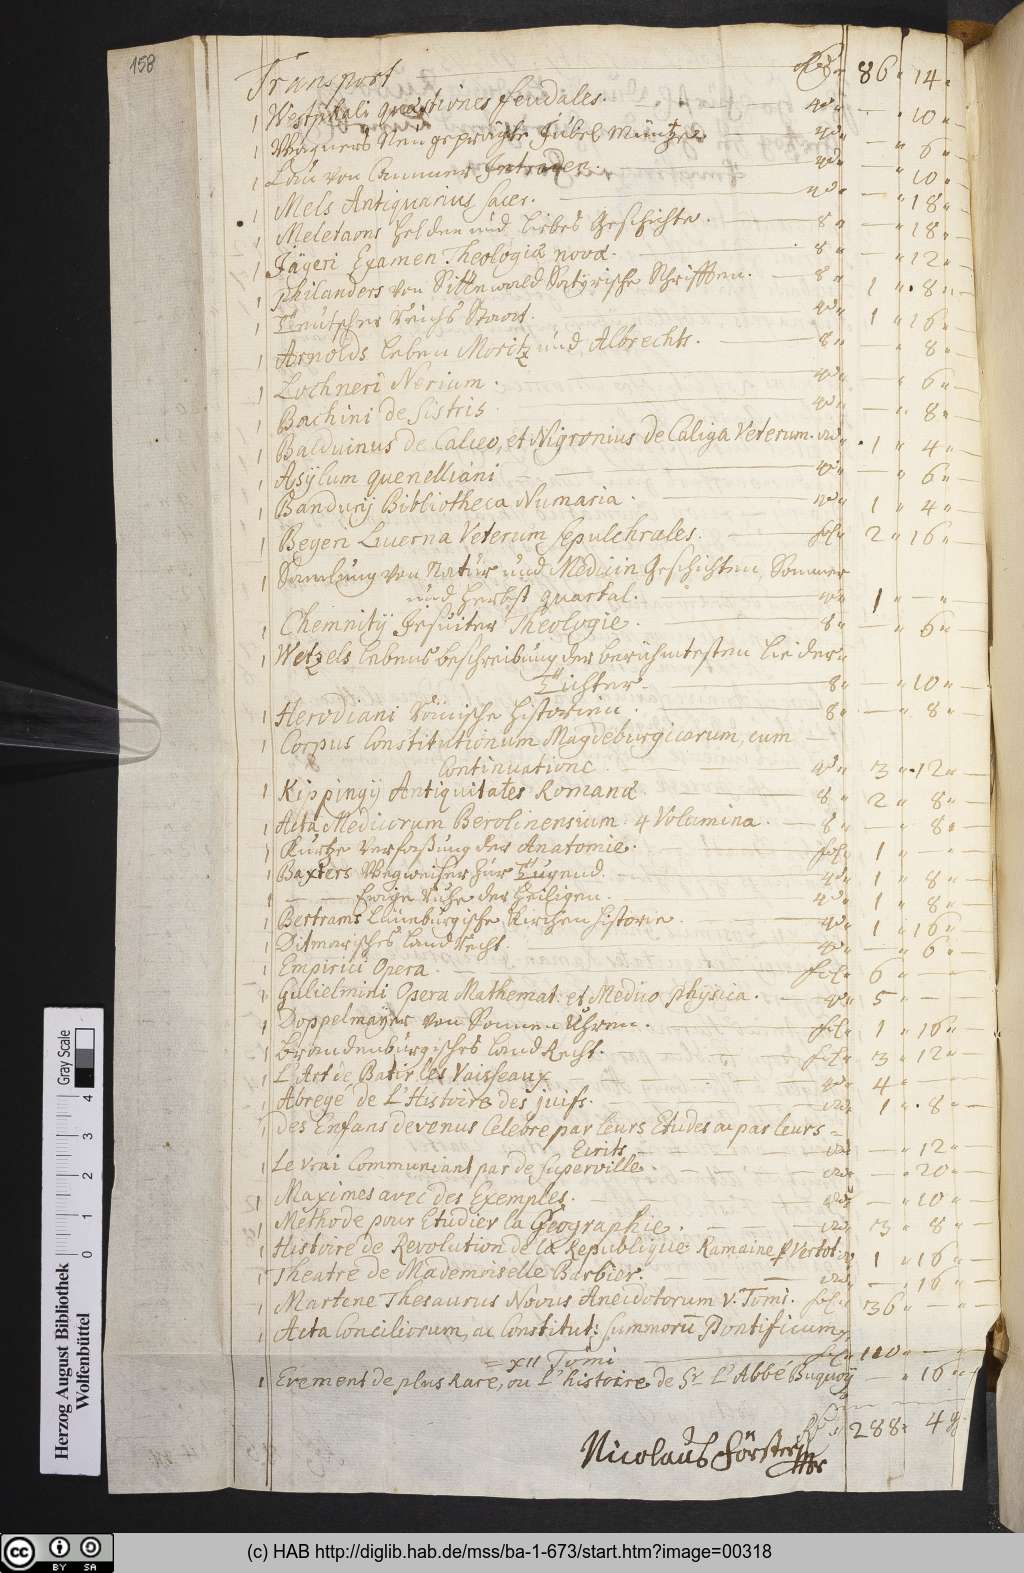 158
Transport 86 " 14 "
1 Westphali quæstiones feudales. 4to — " 10 "
1 Wagners Neu geprägte Jubel Müntzen. 4to — " 6 "
1 Lau von Cammer Intraden. 4to — " 10 "
1 Mels Antiquarius Sacer. 4to — " 18 "
1 Meletaons Helden und Liebes Geschichte. 8 " — " 18 "
1 Jägeri Examen Theologiæ novæ. 8 " — " 12 "
1 Philanders von Sittewald Satyrische Schrifften. 8 " 1 " 8 "
1 Teutscher Reichs Staat. 4to 1 " 16 "
1 Arnolds Leben Moritz und Albrechts. 8 " — " 8 "
1 Lochneri Nerium. 4to — " 6 "
1 Bachini de Sistris 4to — " 8 "
1 Balduinus de Calceo, et Nigronius de Caliga Veterum. 1 " 4 "
1 Asylum quenelliani — " 6 "
1 Bandurij Bibliotheca Numaria. 4to 1 " 4 "
1 Begeri Lucerna Veterum Sepulchrales. fol " 2 " 16 "
1 Samlung von Natur und Medicin Geschichten, Sommer
und Herbst quartal. 4to 1 " — "
1 Chemnitij Jesuiter Theologie. 8 " — " 6 "
1 Wetzels lebens beschreibung der berühmtesten Lieder
Dichter. 8 " — " 10 "
1 Herodiani Römische Historien. 8 " — " 8 "
1 Corpus Constitutionum Magdeburgicarum, cum
Continuatione. 4to 3 " 12 "
1 Kippingij Antiquitates Romanæ 8 " 2 " 8 "
1 Acta Medicorum Berolinensium 4 Volumina. 8 " — " 8 "
1 Kurtze Verfaßung der Anatomie. fol " 1 "
1 Baxters Wegweiser zur Tugend. 4to 1 " 8 "
1 — Ewige Ruhe der Heiligen. 4to 1 " 8 "
1 Bertrams Lüneburgische Kirchen Historie. 4to 1 " 16 "
1 Ditmarisches Land Recht. 4to — " 6 "
1 Empirici Opera. fol " 6 " —
1 Gulielmini Opera Mathemat: et Medico physica. 4to 5 " —
1 Doppelmayer von Sonnen Uhren. fol " 1 " 16 "
1 Brandenburgisches Land Recht. fol " 3 " 12 "
1 L'Art de Batir les Vaisseaux 4to 4 " —
1 Abregé de L'Histoire des juifs. 1 " 8 "
1 Des Enfans devenus Celebre par leurs Etudes ou par leurs =
Ecrits — " 12 "
1 Le vrai Communiant par de Superville. — " 20 "
1 Maximes avec des Exemples. — " 10 "
1 Methode pour Etudier la Geographie. 3 " 8 "
1 Histoire de Revolution de la Republique Romaine p Vertot 1 " 16 "
1 Theatre de Mademoiselle Barbier. — " 16 "
1 Martene Thesaurus Novus Anecdotorum V. Tomi. fol " 36 "
1 Acta Conciliorum, ac Constitut: summorū Pontificum
= XII Tomi fol " 110 " —
1 Evement de plus Rare, ou L'histoire de Sr. L'Abbé Buquoy — " 16 "
288 " 4 g
Nicolaus Förster
Gray Scale
0 1 2 3 4
Herzog August Bibliothek
Wolfenbüttel
BY SA
(c) HAB http://diglib.hab.de/mss/ba-1-673/start.htm?image=00318